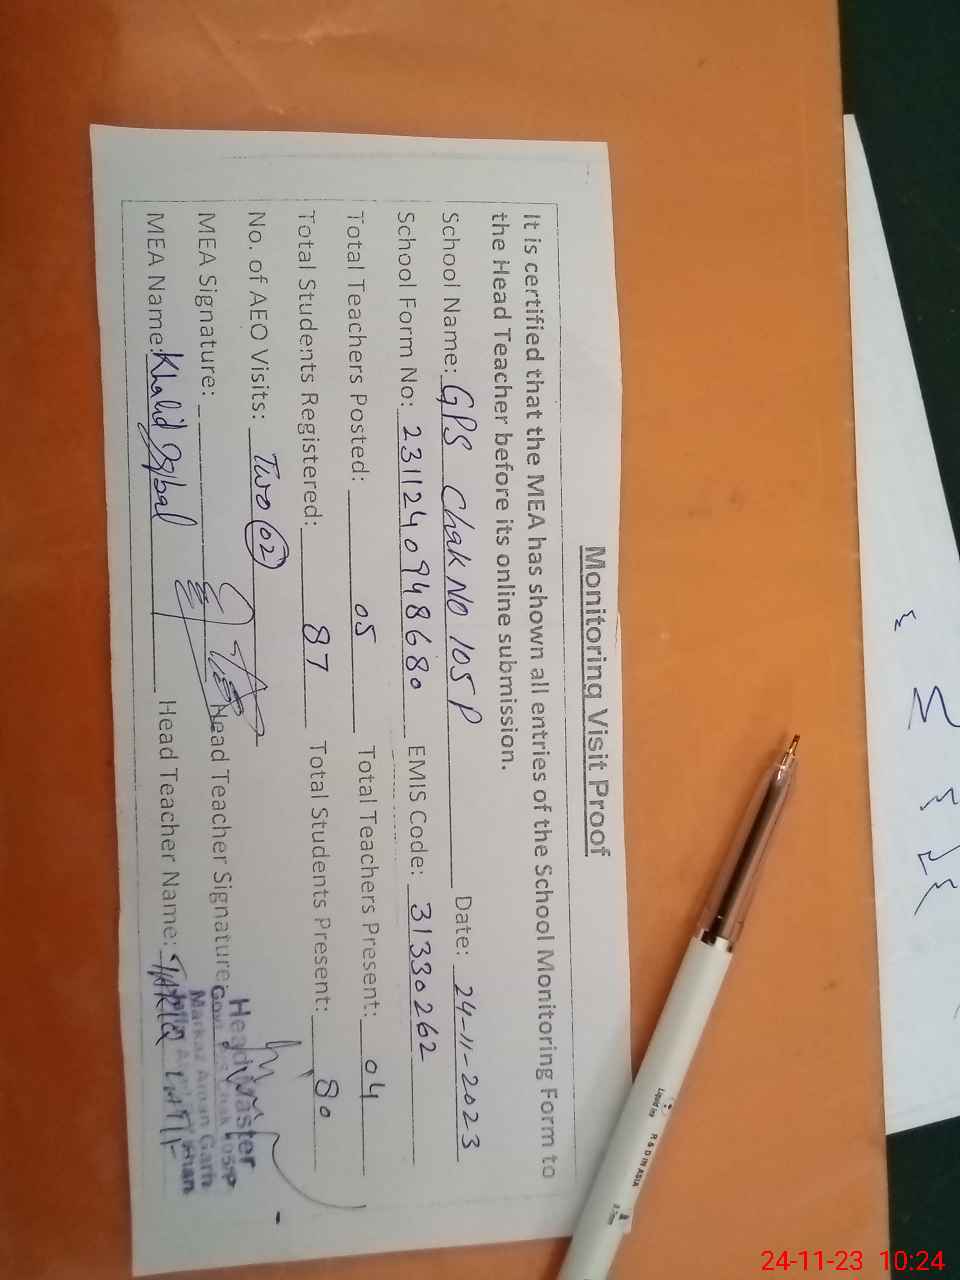 Monitoring Visit Proof
It is certified that the MEA has shown all entries of the School Monitoring Form to
the Head Teacher before its online submission.
School Name: GPS Chak No 105 P Date: 24-11-2023
School Form No: 2311240948680 EMIS Code: 31330262
Total Teachers Posted: 05 Total Teachers Present: 04
Total Students Registered: 87 Total Students Present: 80
No. of AEO Visits: Two 02
MEA Signature: Head Teacher Signature:
MEA Name: Khalid Iqbal Head Teacher Name: TARIQ
Head Master
Markaz Aman Garh
Khan
R & D IN ASIA
24-11-23 10:24